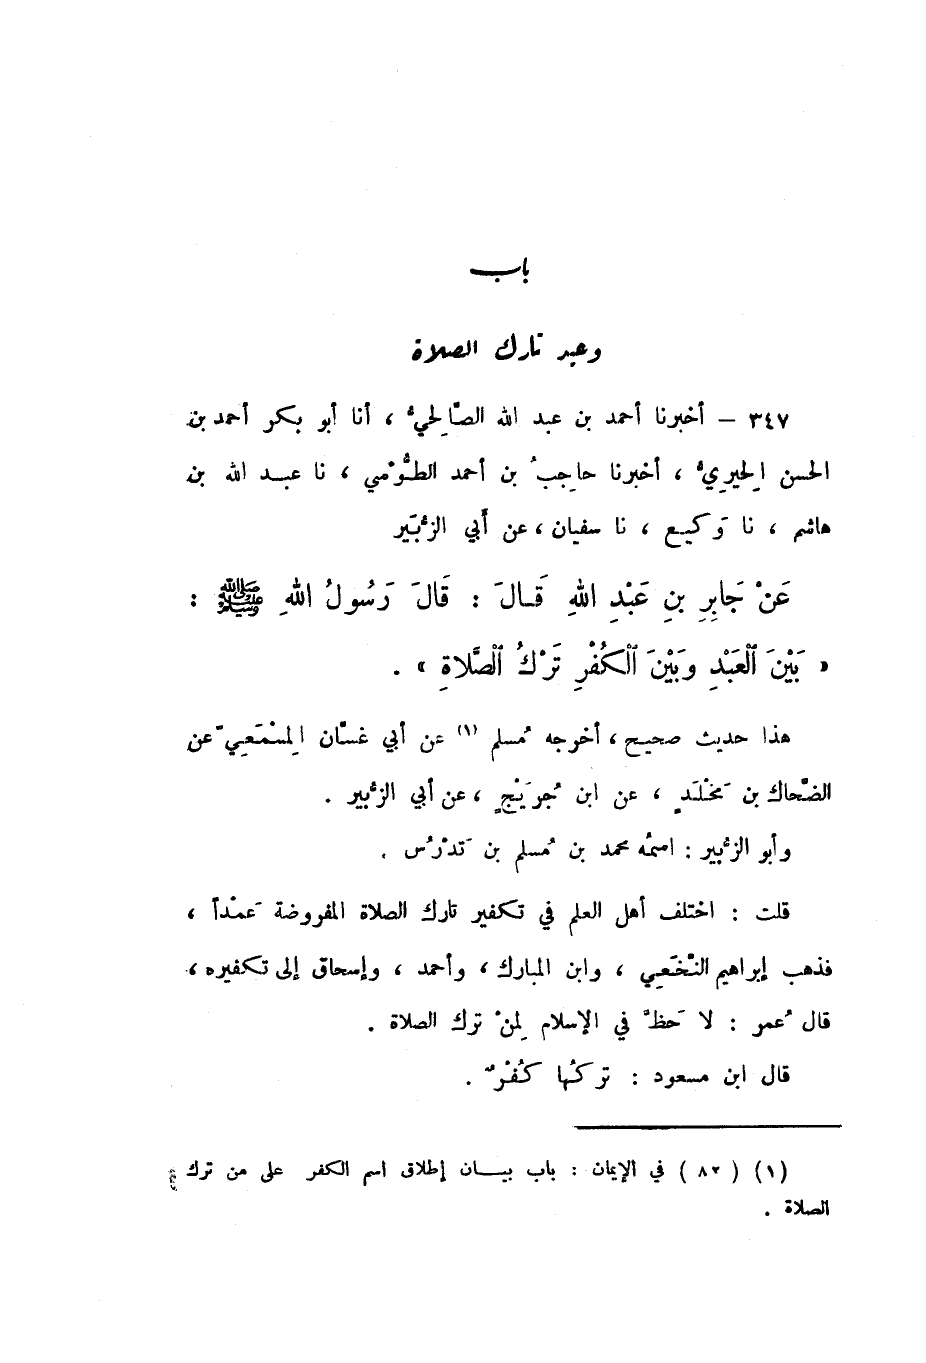 باب
وعيد تارك الصلاة
٣٤٧ – أخبرنا أحمد بن عبد الله الصَّالِحيُّ ، أنا أبو بكر أحمد بن
الحسن الحِيرِيُّ ، أخبرنا حاجِبُ بن أحمد الطُّوْسي ، نا عبد الله بن
هاشم ، نا وَكيع ، نا سفيان ، عن أَبي الزُّبَير
عَنْ جَابِرِ بنِ عَبْدِ اللهِ قَالَ : قَالَ رَسُولُ اللهِ ﷺ :
« بَيْنَ ٱلْعَبْدِ وَبَيْنَ ٱلْكُفْرِ تَرْكُ ٱلصَّلاةِ » .
هذا حديث صحيح ، أخرجه مُسلم (١) عن أبي غسَّان المِسْمَعِيّ عن
الضَّحاك بن مَخْلَدٍ ، عن ابن جُرَيْجٍ ، عن أبي الزُّبير .
وأبو الزُّبير : اسمُه محمد بن مُسلم بن تَدْرُس .
قلت : اختلف أهل العلم في تكفير تارك الصلاة المفروضة عَمْداً ،
فذهب إبراهيم النَّخَعِي ، وابن المبارك ، وأحمد ، وإسحاق إلى تكفيره ،
قال عُمر : لا حَظَّ في الإسلام لِمنْ ترك الصلاة .
قال ابن مسعود : تركُها كُفْرٌ .
(١) ( ٨٢ ) في الإيمان : باب بيان إطلاق اسم الكفر على من ترك
الصلاة .